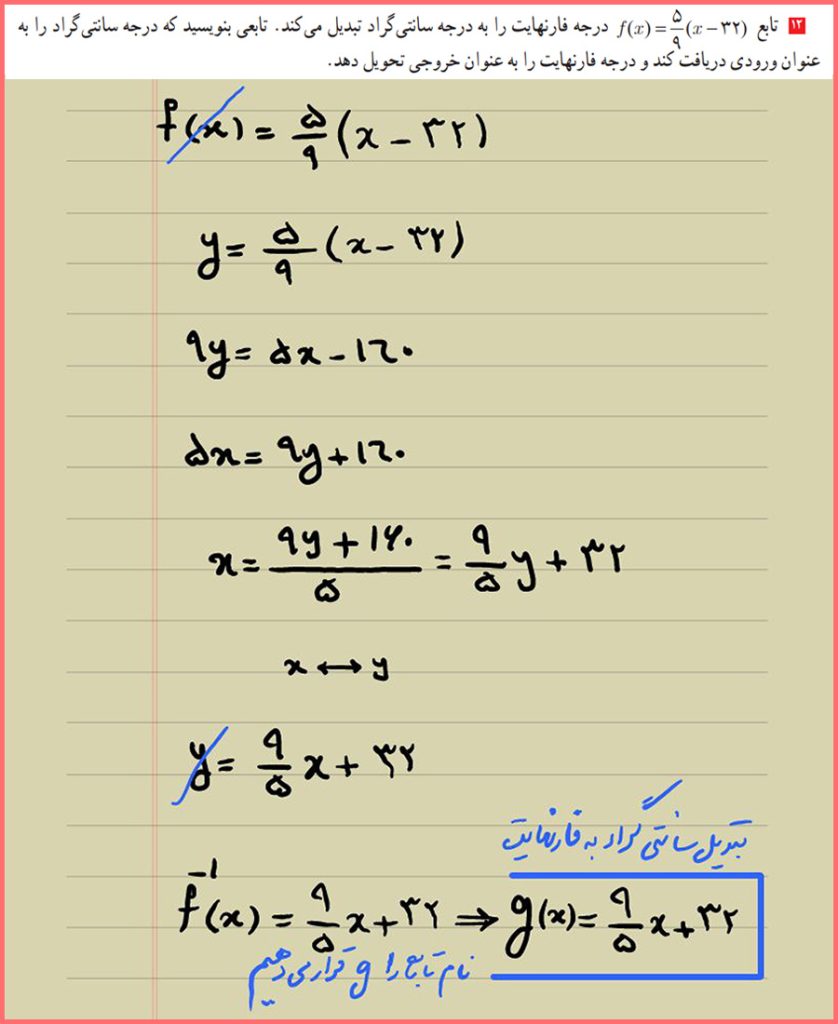 ۱۲ تابع f(x) = ۵/۹ (x − ۳۲) درجه فارنهایت را به درجه سانتی‌گراد تبدیل می‌کند. تابعی بنویسید که درجه سانتی‌گراد را به
عنوان ورودی دریافت کند و درجه فارنهایت را به عنوان خروجی تحویل دهد.
f(x) = ۵/۹ (x − ۳۲)
y = ۵/۹ (x − ۳۲)
۹y = ۵x − ۱۶۰
۵x = ۹y + ۱۶۰
x = (۹y + ۱۶۰)/۵ = ۹/۵ y + ۳۲
x ↔ y
y = ۹/۵ x + ۳۲
تبدیل سانتی گراد به فارنهایت
f⁻¹(x) = ۹/۵ x + ۳۲ ⇒ g(x) = ۹/۵ x + ۳۲
نام تابع را g قرار می دهیم